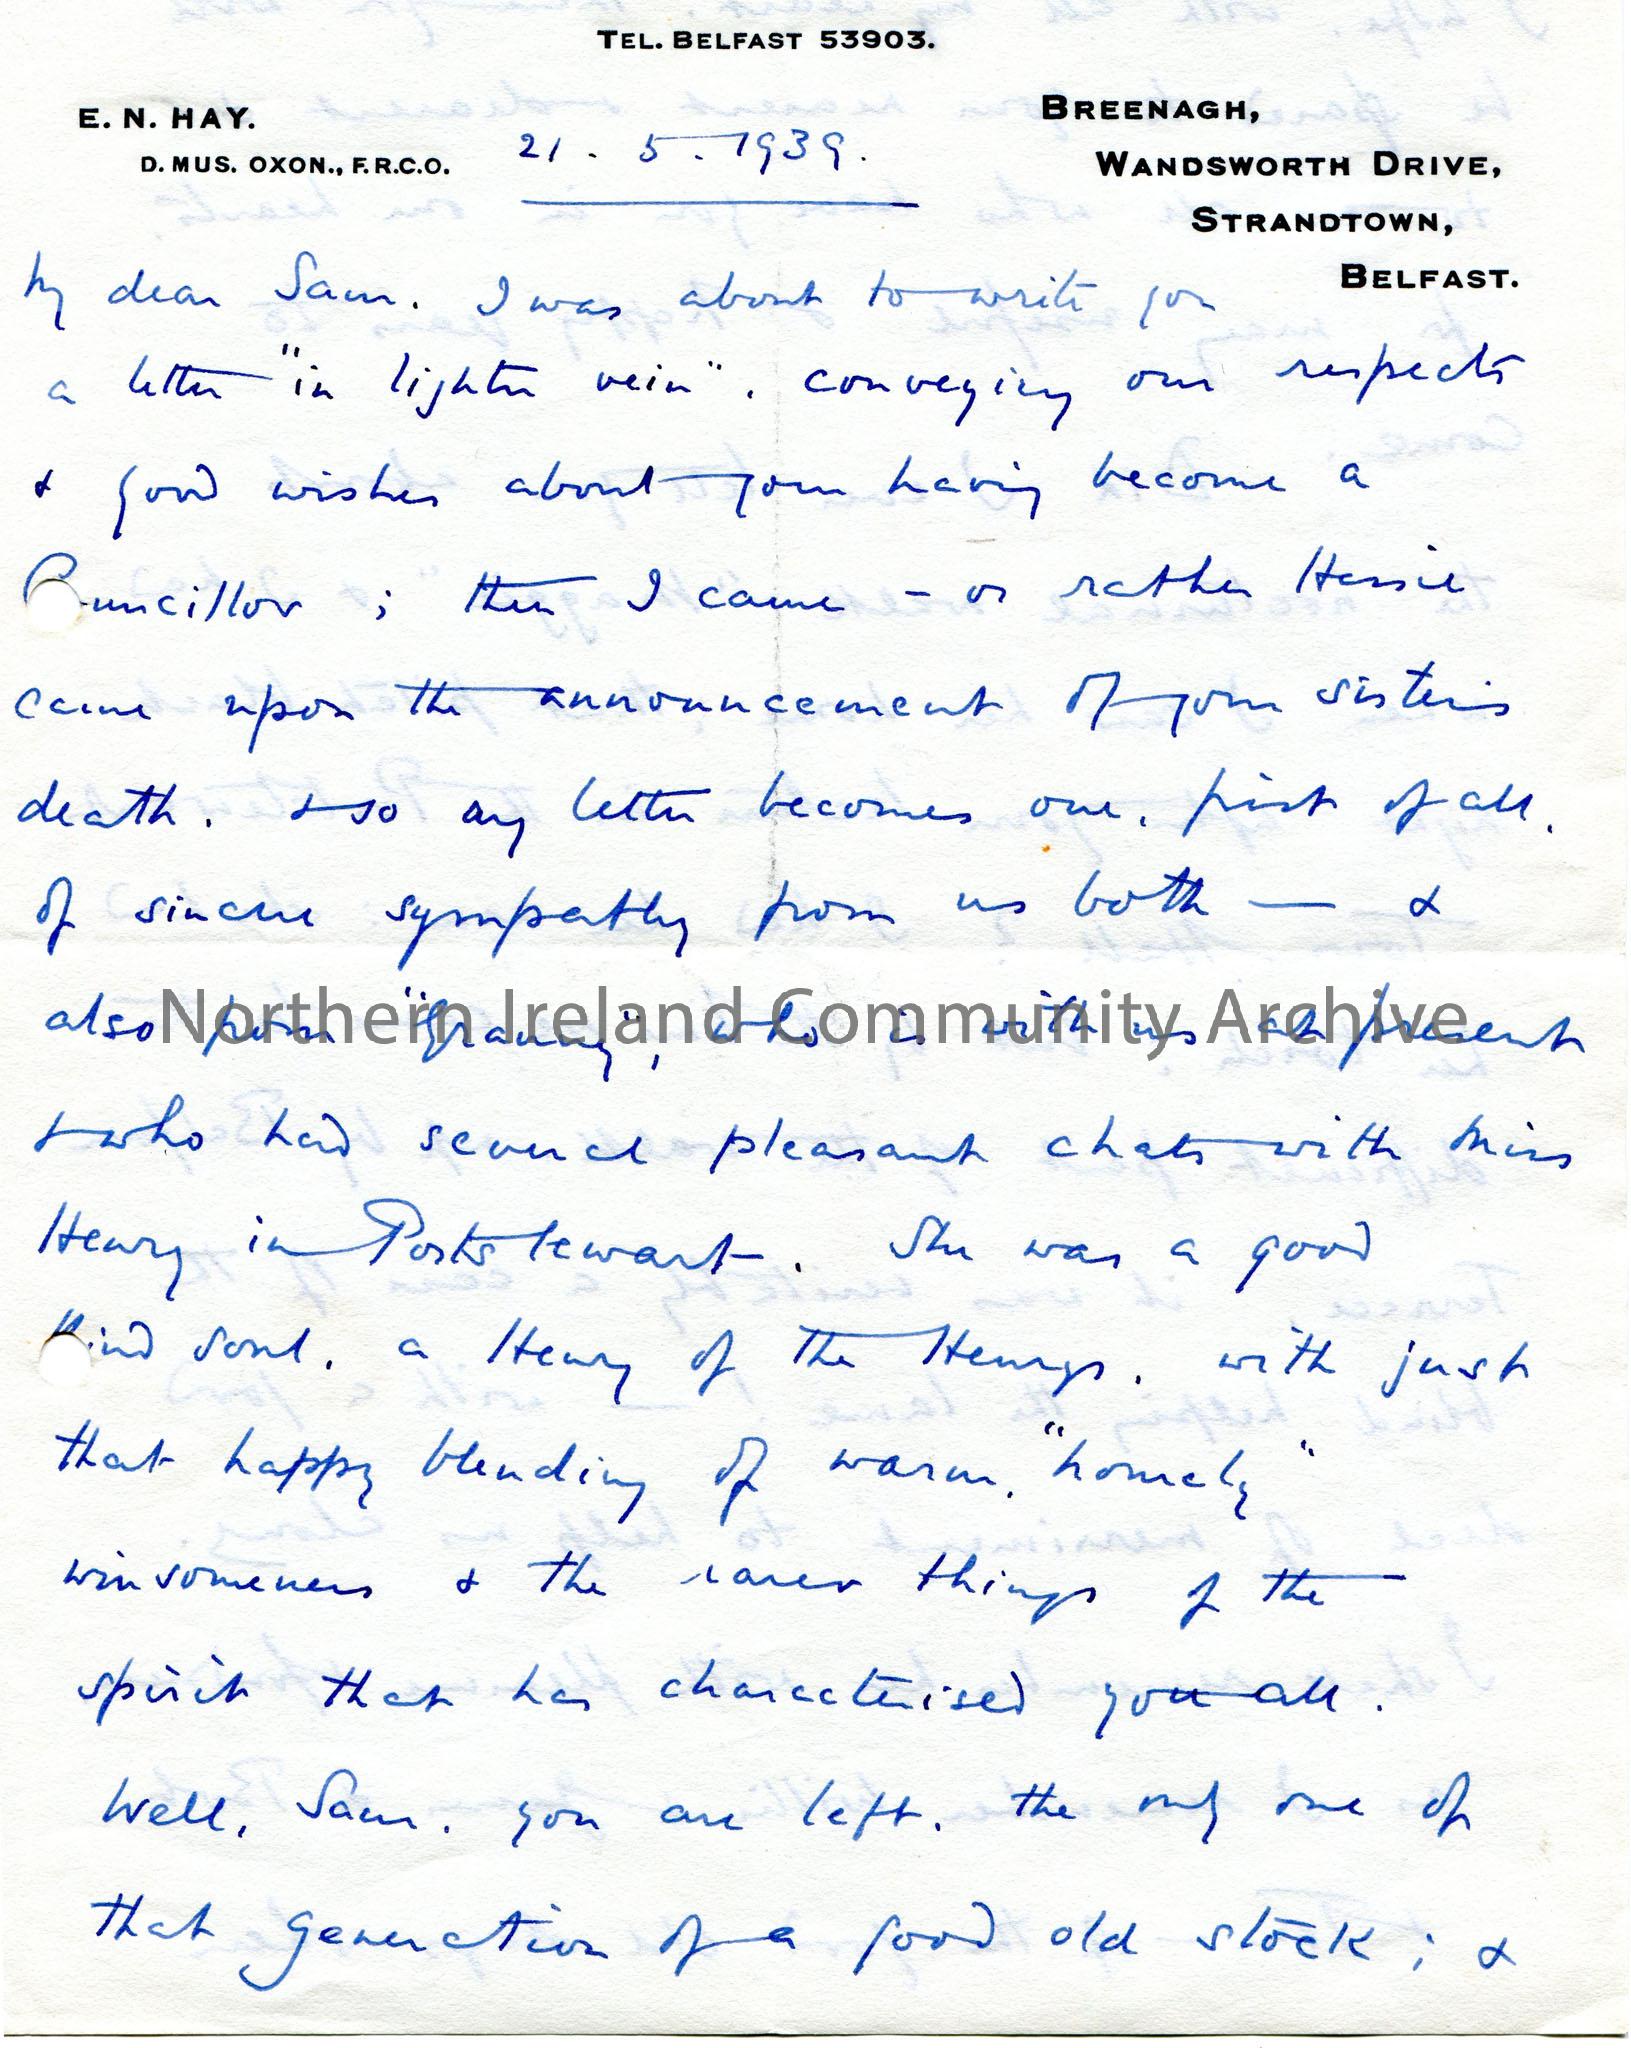 TEL. BELFAST 53903.
E. N. HAY.
D. MUS. OXON., F.R.C.O.
21. 5. 1939.
BREENAGH,
WANDSWORTH DRIVE,
STRANDTOWN,
BELFAST.
My dear Sam. I was about to write you
a letter "in lighter vein", conveying our respects
& good wishes about your having become a
Councillor; then I came - or rather Hessie
came upon the announcement of your sister's
death. & so my letter becomes one, first of all,
of sincere sympathy from us both — &
also from "Granny", who is with us at present
& who had several pleasant chats with Miss
Henry in Portstewart. She was a good
kind soul, a Henry of the Henrys, with just
that happy blending of warm, "homely"
winsomeness & the rarer things of the
spirit that has characterised you all.
Well, Sam, you are left, the only one of
that generation of a good old stock; &
Northern Ireland Community Archive